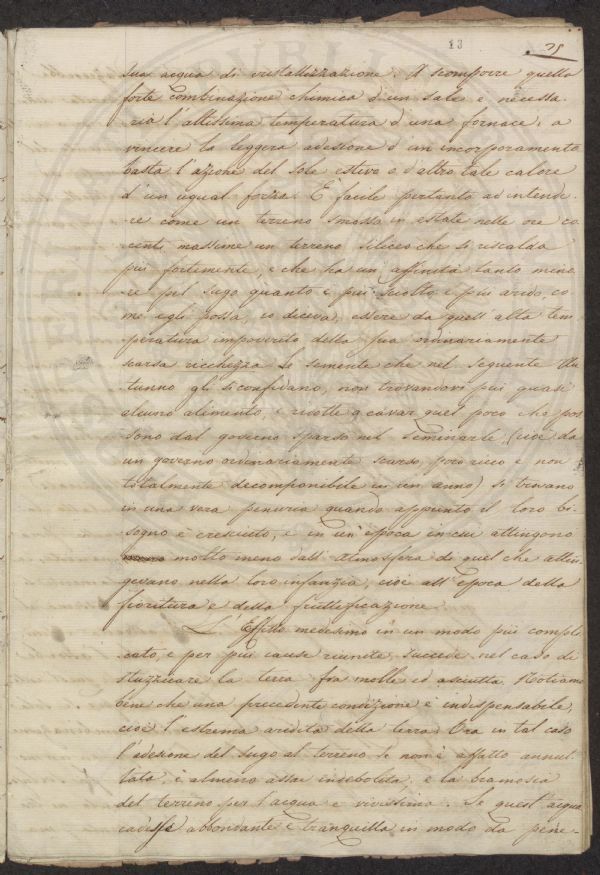 13
25
sua acqua di cristallizzazione. A scomporre quella
forte combinazione chimica d'un sale è necessa-
ria l'altissima temperatura d'una fornace; a
vincere la leggera adesione d'un incorporamento
basta l'azione del sole estivo o d'altro tale calore
d'un ugual forza. È facile pertanto ad intende-
re come un terreno smosso in estate nelle ore co-
centi massime un terreno siliceo che si riscalda
più fortemente, e che ha un'affinità tanto mino-
re pel sugo quanto è più sciolto e più arido, co-
me egli possa, io diceva, essere da quell'alta tem-
peratura impoverito della sua ordinariamente
scarsa ricchezza. Le semente che nel seguente Au-
tunno gli si confidano, non trovandovi più quasi
alcuno alimento, e ridotte a cavar quel poco che pos-
sono dal governo sparso nel seminarle, (cioè da
un governo ordinariamente scarso, poco ricco e non
totalmente decomponibile in un anno) si trovano
in una vera penuria quando appunto il loro bi-
sogno è cresciuto, e in un'epoca in cui attingono
molto meno dall'atmosfera di quel che attin-
gevano nella loro infanzia, cioè all'epoca della
fioritura e della fruttificazione.
L'Effetto medesimo in un modo più compli-
cato, e per più cause riunite, succede nel caso di
stuzzicare la terra fra molle ed asciutta. Notiamo
bene che una precedente condizione è indispensabile,
cioè l'estrema aridità della terra. Ora in tal caso
l'adesione del sugo al terreno se non è affatto annul-
lata, è almeno assai indebolita, e la bramosia
del terreno per l'acqua è vivissima. Se quest'acqua
cadesse abbondante e tranquilla in modo da pene-